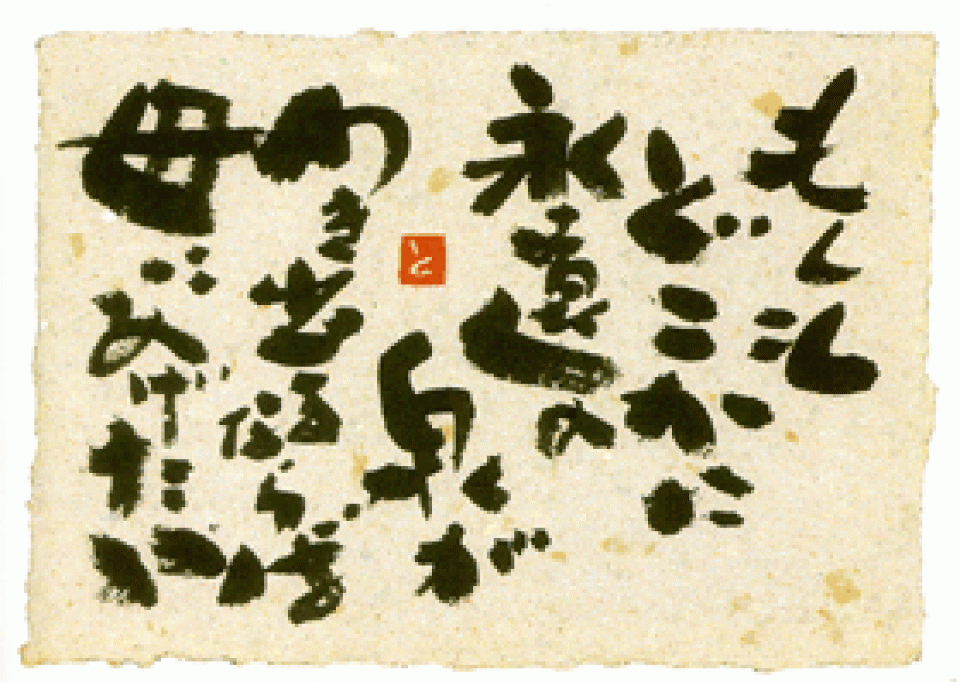 もしも
どこかに
永遠の
泉が
わき出るならば
母にあげたい
と